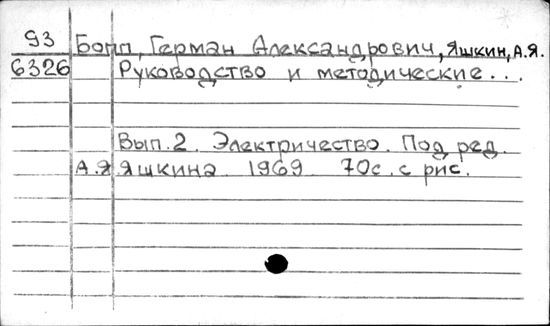 93 Бопп, Герман Александрович, Яшкин, А.Я.
6326 Руководство и методические...
Вып. 2. Электричество. Под ред.
А.Я Яшкина. 1969. 70с. с рис.